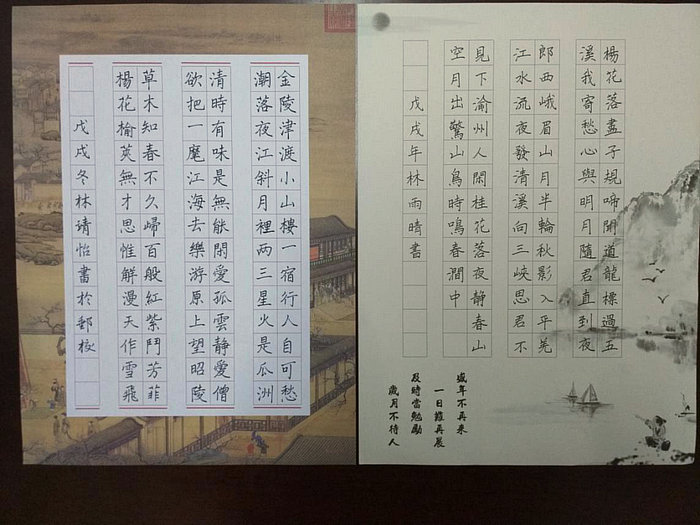 楊花落盡子規啼聞道龍標過五
溪我寄愁心與明月隨君直到夜
郎西峨眉山月半輪秋影入平羌
江水流夜發清溪向三峽思君不
見下渝州人閒桂花落夜靜春山
空月出驚山鳥時鳴春澗中
戊戌年林雨晴書
盛年不再來
一日難再晨
及時當勉勵
歲月不待人
金陵津渡小山樓一宿行人自可愁
潮落夜江斜月裡两三星火是瓜洲
清時有味是無能閒愛孤雲靜愛僧
欲把一麾江海去樂游原上望昭陵
草木知春不久歸百般紅紫鬥芳菲
楊花榆莢無才思惟解漫天作雪飛
戊戌冬林靖怡書於郵校